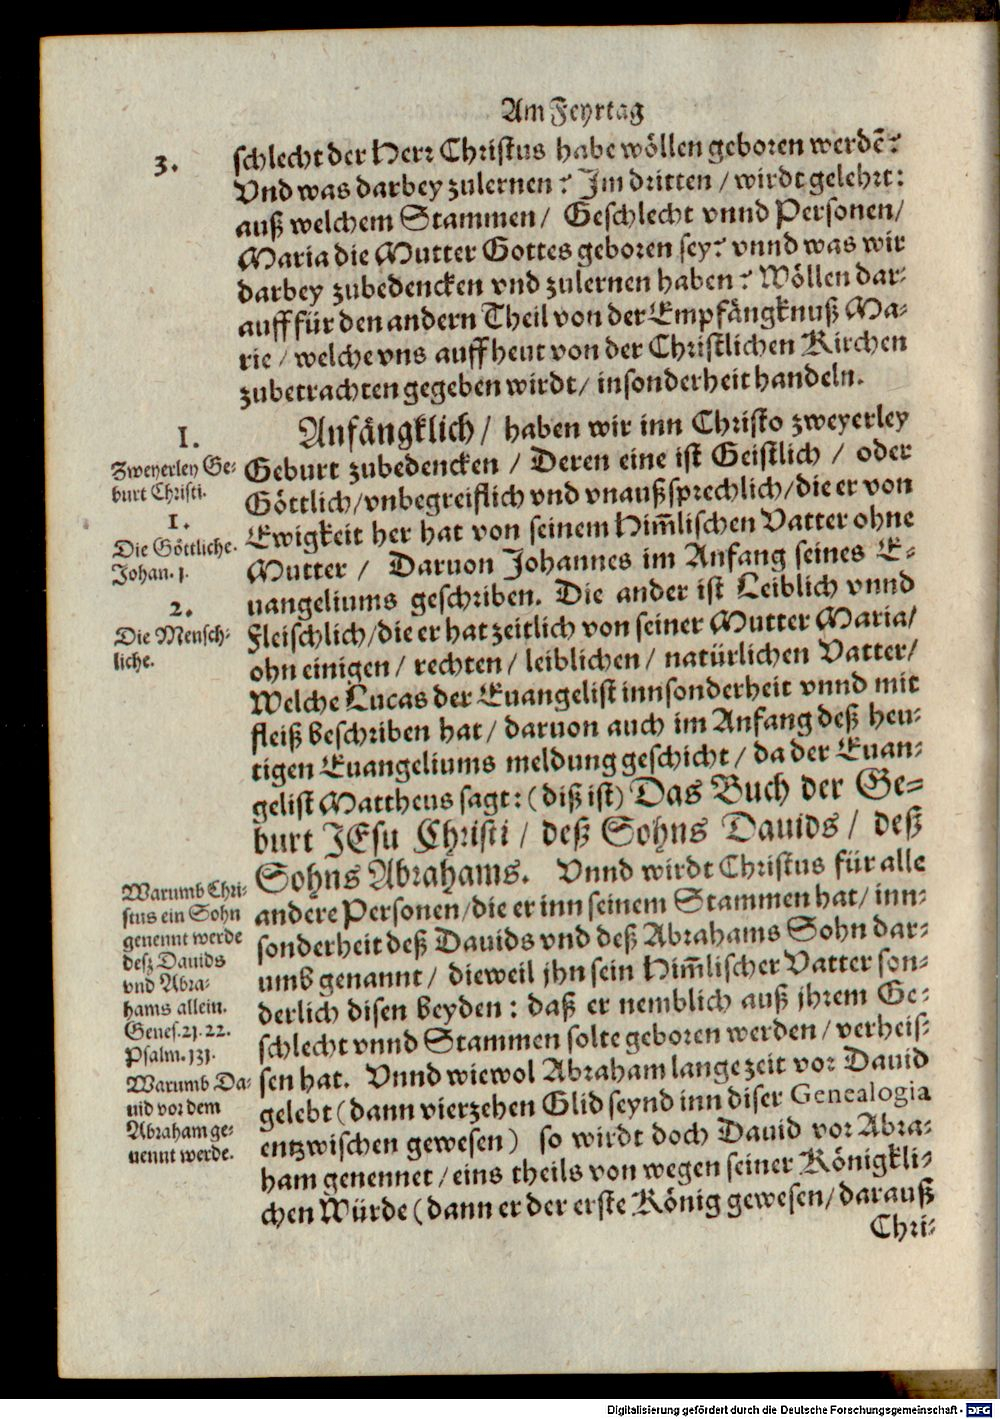 Am Feyrtag
3.
schlecht der Herr Christus habe wöllen geboren werdē?
Vnd was darbey zulernen? Im dritten / wirdt gelehrt:
auß welchem Stammen / Geschlecht vnnd Personen /
Maria die Mutter Gottes geboren sey? vnnd was wir
darbey zubedencken vnd zulernen haben? Wöllen dar-
auff für den andern Theil von der Empfängknuß Ma-
rie / welche vns auff heut von der Christlichen Kirchen
zubetrachten gegeben wirdt / insonderheit handeln.
I.
Zweyerley Ge-
burt Christi.
1.
Die Göttliche.
Johan. 1.
2.
Die Mensch-
liche.
Anfängklich / haben wir inn Christo zweyerley
Geburt zubedencken / Deren eine ist Geistlich / oder
Göttlich / vnbegreiflich vnd vnaußsprechlich / die er von
Ewigkeit her hat von seinem Him̄lischen Vatter ohne
Mutter / Daruon Johannes im Anfang seines E-
uangeliums geschriben. Die ander ist Leiblich vnnd
Fleischlich / die er hat zeitlich von seiner Mutter Maria /
ohn einigen / rechten / leiblichen / natürlichen Vatter /
Welche Lucas der Euangelist innsonderheit vnnd mit
fleiß beschriben hat / daruon auch im Anfang deß heu-
tigen Euangeliums meldung geschicht / da der Euan-
gelist Mattheus sagt: (diß ist) Das Buch der Ge-
burt JEsu Christi / deß Sohns Dauids / deß
Sohns Abrahams. Vnnd wirdt Christus für alle
andere Personen / die er inn seinem Stammen hat / inn-
sonderheit deß Dauids vnd deß Abrahams Sohn dar-
umb genannt / dieweil jhn sein Him̄lischer Vatter son-
derlich disen beyden: daß er nemblich auß jhrem Ge-
schlecht vnnd Stammen solte geboren werden / verheis-
sen hat. Vnnd wiewol Abraham lange zeit vor Dauid
gelebt (dann vierzehen Glid seynd inn diser Genealogia
entzwischen gewesen) so wirdt doch Dauid vor Abra-
ham genennet / eins theils von wegen seiner Königkli-
chen Würde (dann er der erste König gewesen / darauß
Warumb Chri-
stus ein Sohn
genennt werde
deß Dauids
vnd Abra-
hams allein.
Genes. 21. 22.
Psalm. 131.
Warumb Da-
uid vor dem
Abraham ge-
nennt werde.
Chri-
Digitalisierung gefördert durch die Deutsche Forschungsgemeinschaft - DFG